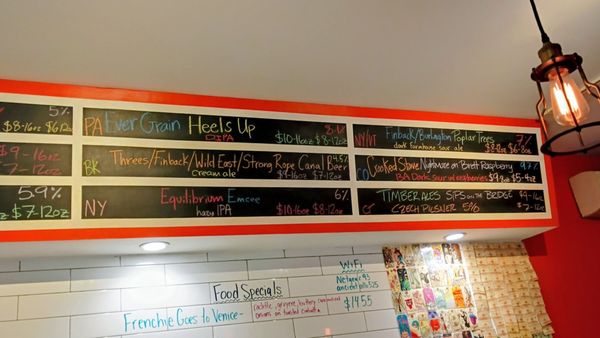 5%
$8-16oz $6-12
$9-16oz
$7-12oz
5.9%
$7-12oz
PA Ever Grain Heels Up 8.1%
DIPA $10-16oz $8-12oz
BK Threes/Finback/Wild East/Strong Rope Canal Beer 4.5%
cream ale $9-16oz $7-12oz
NY Equilibrium Emcee 6%
hazy IPA $10-16oz $8-12oz
NY/VT Finback/Burlington Poplar Trees 7%
dark farmhouse ale
CO Crooked Stave Nightmare on Brett Raspberry 9.7%
BA Dark sour w/raspberries $9-8oz $5-4oz
CT Timber Ales Sips on the Bridge $9-16oz
Czech Pilsner 5% $7-12oz
WiFi
Netgear 93
ancient 525
Food Specials
Frenchie Goes to Venice-
gruyere,
onions on toasted
$14.55